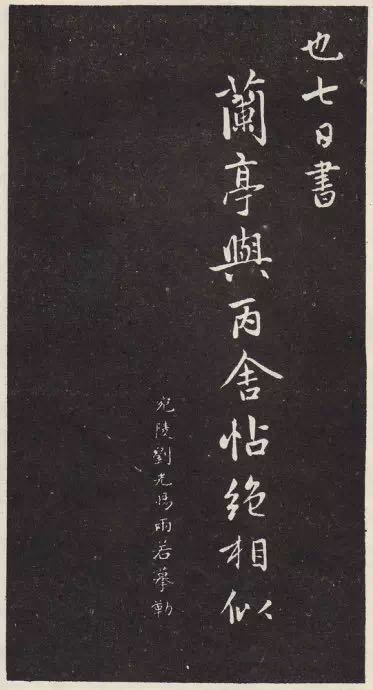 也七日書
蘭亭與丙舍帖絶相似
宛陵劉光暘雨若摹勒